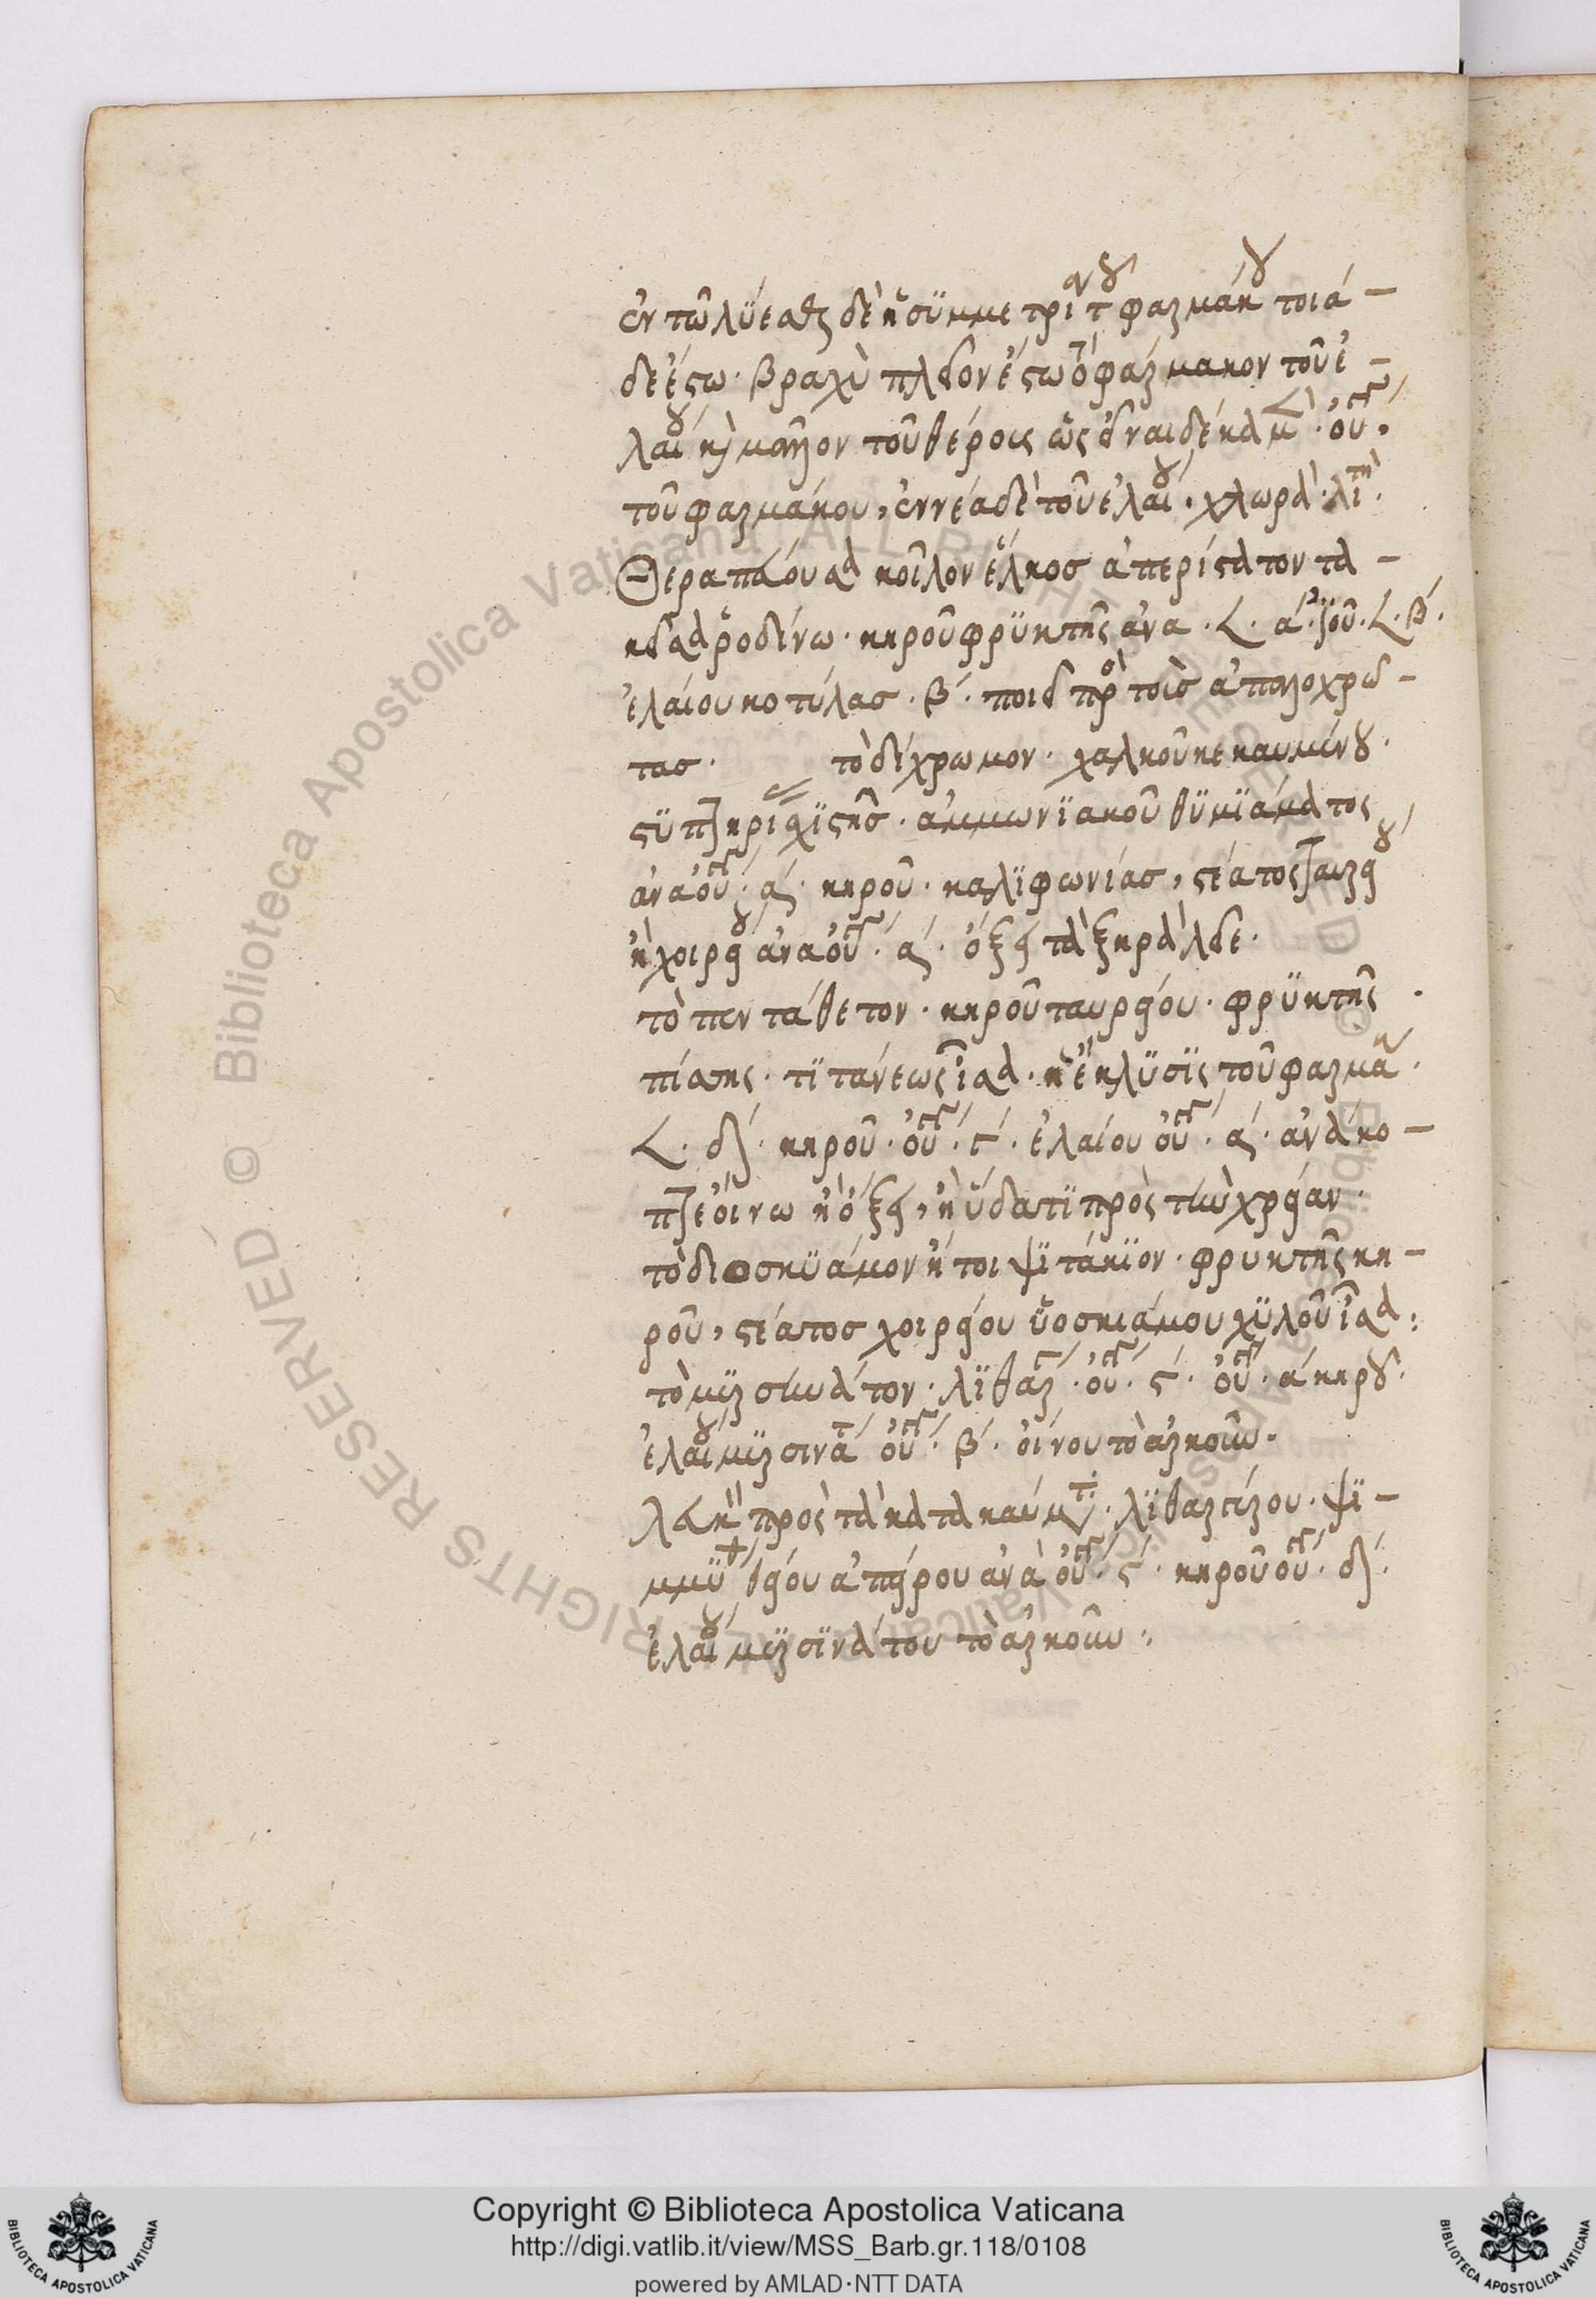 ἐν τῶ λύεσθαι δὲ ἡ συμμετρία τοῦ φαρμάκου τοιά-
δε ἔστω· βραχὺ πλεῖον ἔστω τὸ φάρμακον τοῦ ἐ-
λαίου καὶ μᾶλλον τοῦ θέρους ὡς εἶναι δέκα μὲν οὐγ
τοῦ φαρμάκου, ἐννέα δὲ τοῦ ἐλαίου· χλωρὰ
Θεραπεύουσα κοῖλον ἕλκος ἀπερίστατον
ῥοδίνω· κηροῦ φρυκτῆς ἀνα · α´ · ἰοῦ · β´·
ἐλαίου κοτύλας · β´· ποιεῖ πρὸς τοὺς
τας· τὸ δίχρωμον· χαλκοῦ κεκαυμένου·
στυπτηρίας σχιστῆς· ἀμμωνιακοῦ θυμιάματος
ἀνα οὐγ · α´· κηροῦ· κολοφωνίας, στέατος ταυρείου
ἢ χοιρείου ἀνα οὐγ · α´· ὄξει τὰ ξηρὰ λύε·
τὸ πεντάθετον· κηροῦ ταυρείου· φρυκτῆς·
πίσσης· τιτάνεως ἴσα· ἡ ἔκλυσις τοῦ φαρμάκου·
δ´· κηροῦ· οὐγ · ἐλαίου οὐγ · α´· ἀνάκο-
πτε οἴνω ἢ ὄξει, ἢ ὕδατι πρὸς τὴν χρείαν·
τὸ διοσκυάμον ἤτοι ψιτάκιον· φρυκτῆς κη-
ροῦ, στέατος χοιρείου ὑοσκιάμου χυλοῦ ἴσα:
τὸ μυρσινάτον· λιθαρ · οὐγ · ς´· οὐγ · α´ κηροῦ·
ἐλαίου μυρσινάτου οὐγ · β´· οἴνου τὸ ἀρκοῦν·
λευκὴ πρὸς τὰ κατακαύματα· λιθαργύρου· ψι-
μμυθίου θείου ἀπείρου ἀνὰ οὐγ · ς´· κηροῦ οὐγ · δ´·
ἐλαίου μυρσινάτου τὸ ἀρκοῦν:
Copyright © Biblioteca Apostolica Vaticana
http://digi.vatlib.it/view/MSS_Barb.gr.118/0108
powered by AMLAD·NTT DATA